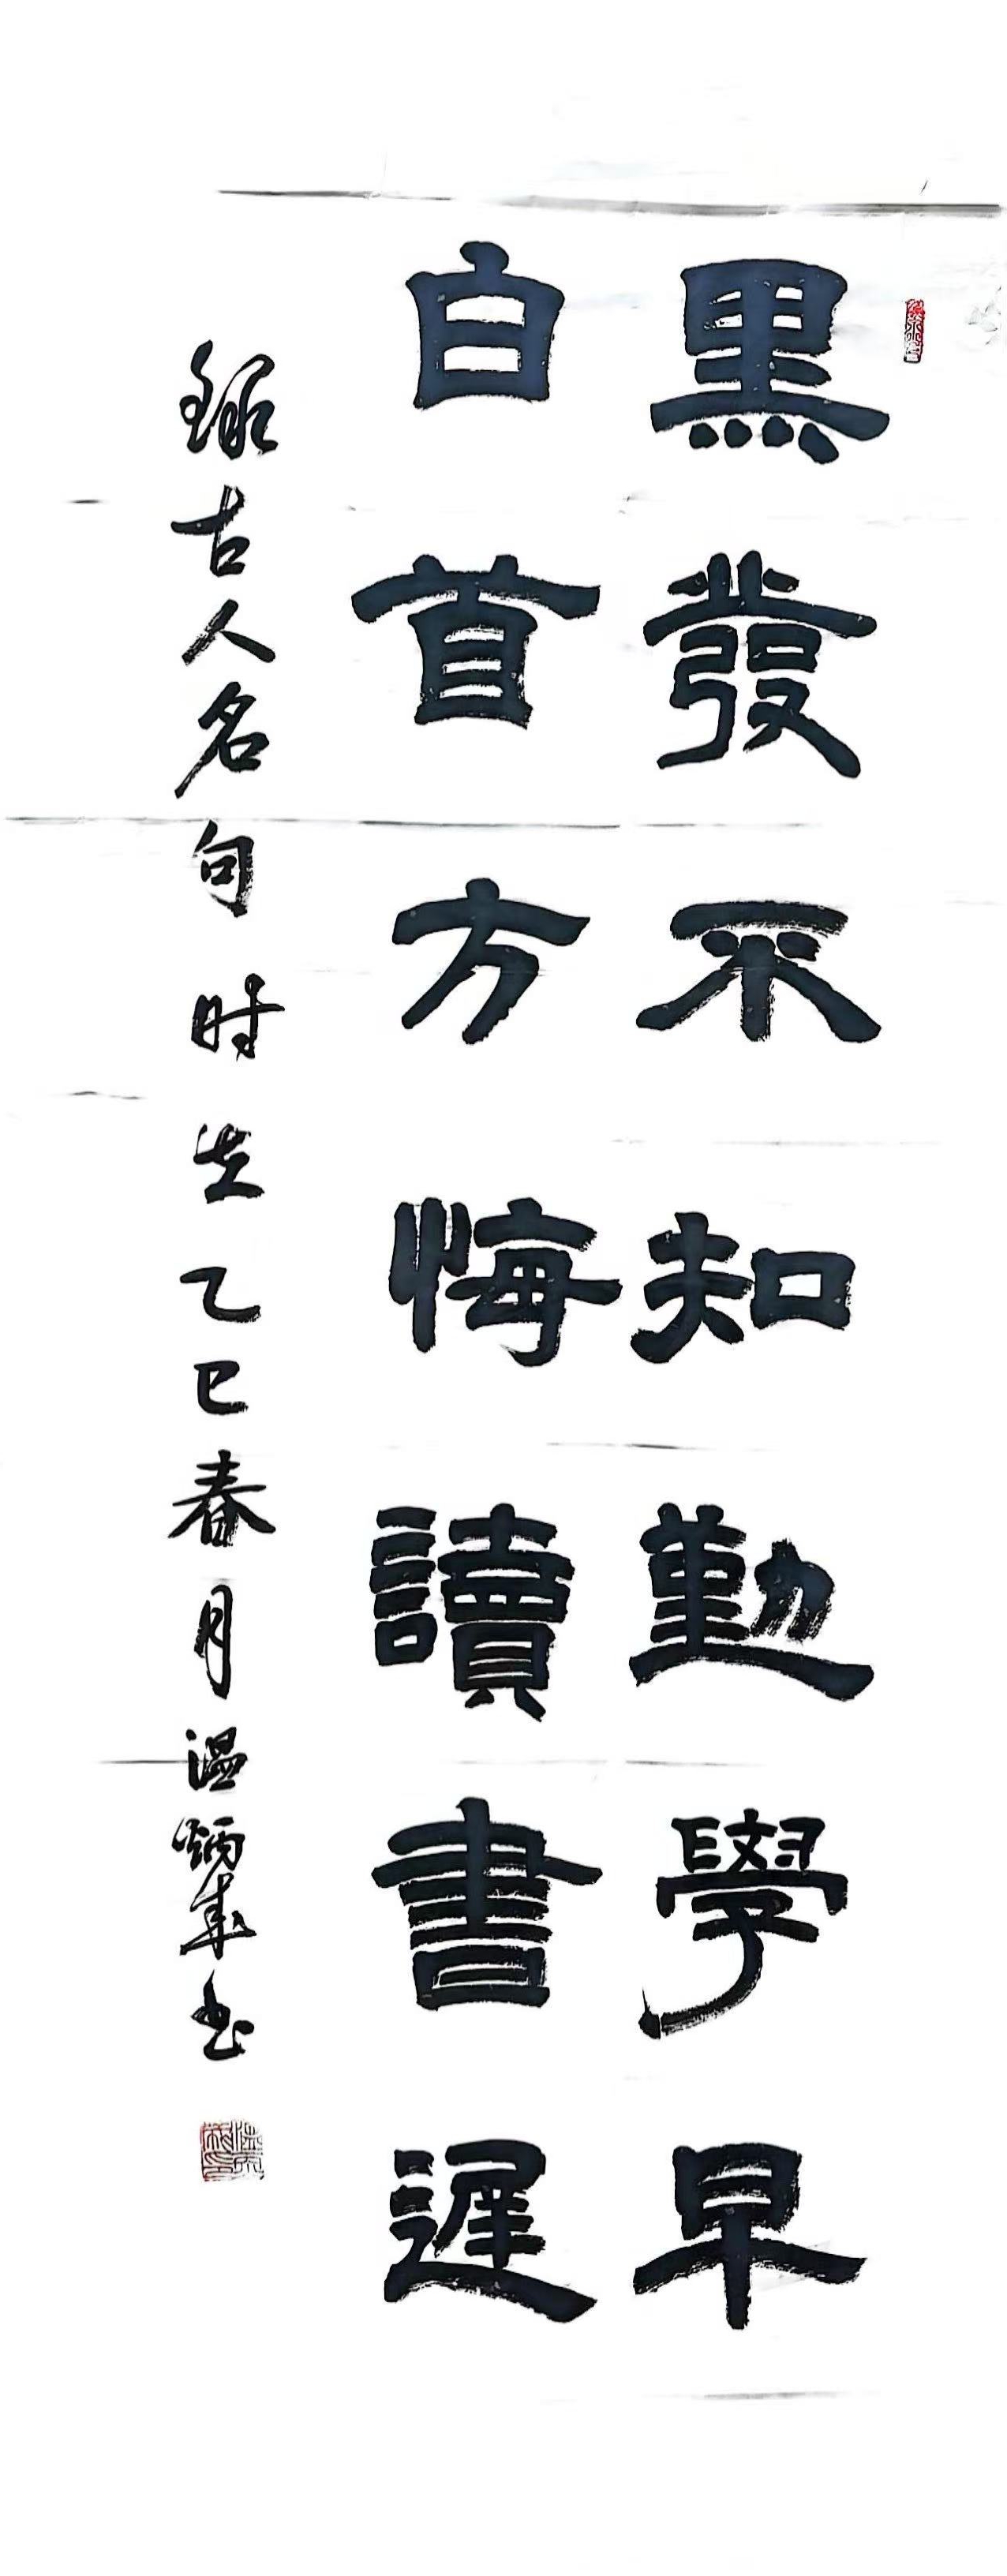 黑發不知勤學早
白首方悔讀書遲
録古人名句時在乙巳春月温炳華书